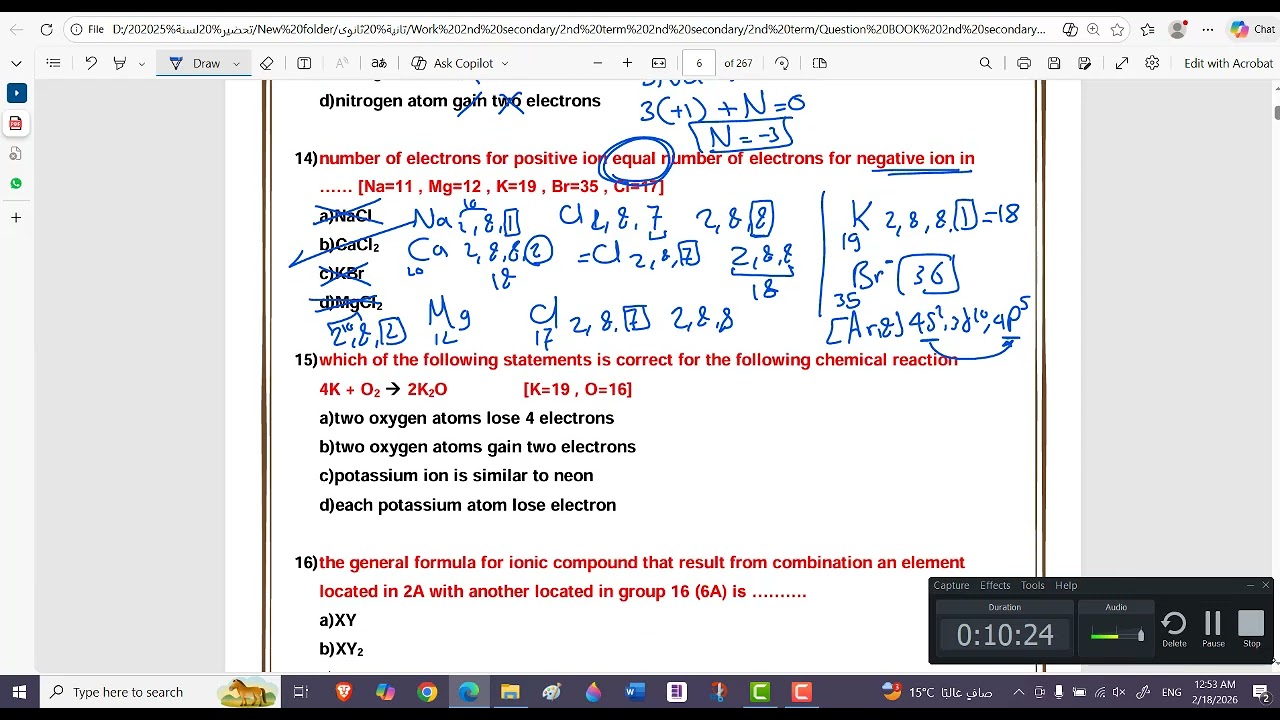 File D:/202025%20لسنة%20تحضير/New%20folder/ثانية%20ثانوى/Work%202nd%20secondary/2nd%20term%202nd%20secondary/2nd%20term/Question%20BOOK%202nd%20secondary... Chat
Draw Ask Copilot 6 of 267 Edit with Acrobat
d)nitrogen atom gain two electrons
3(+1) + N = 0
N = -3
14)number of electrons for positive ion equal number of electrons for negative ion in
...... [Na=11 , Mg=12 , K=19 , Br=35 , Cl=17]
a)NaCl Na 2,8,1 10 Cl 2,8,7 2,8,8 K 2,8,8,1 =18
19
b)CaCl₂ Ca 2,8,8,2 = Cl 2,8,7 2,8,8
20 18 18
c)KBr Br⁻ 36
35
d)MgCl₂ Mg Cl 2,8,7 2,8,8
2,8,2 10 12 17 [Ar,18] 4s², 3d¹⁰, 4p⁵
15)which of the following statements is correct for the following chemical reaction
4K + O₂ → 2K₂O [K=19 , O=16]
a)two oxygen atoms lose 4 electrons
b)two oxygen atoms gain two electrons
c)potassium ion is similar to neon
d)each potassium atom lose electron
16)the general formula for ionic compound that result from combination an element
located in 2A with another located in group 16 (6A) is ..........
a)XY
b)XY₂
Capture Effects Tools Help
Duration Audio
0:10:24 Delete Pause Stop
Type here to search 15°C صافٍ غالبًا ENG 12:53 AM
2/18/2026